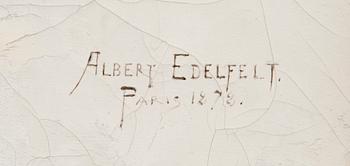 ALBERT EDELFELT.
PARIS 1878.